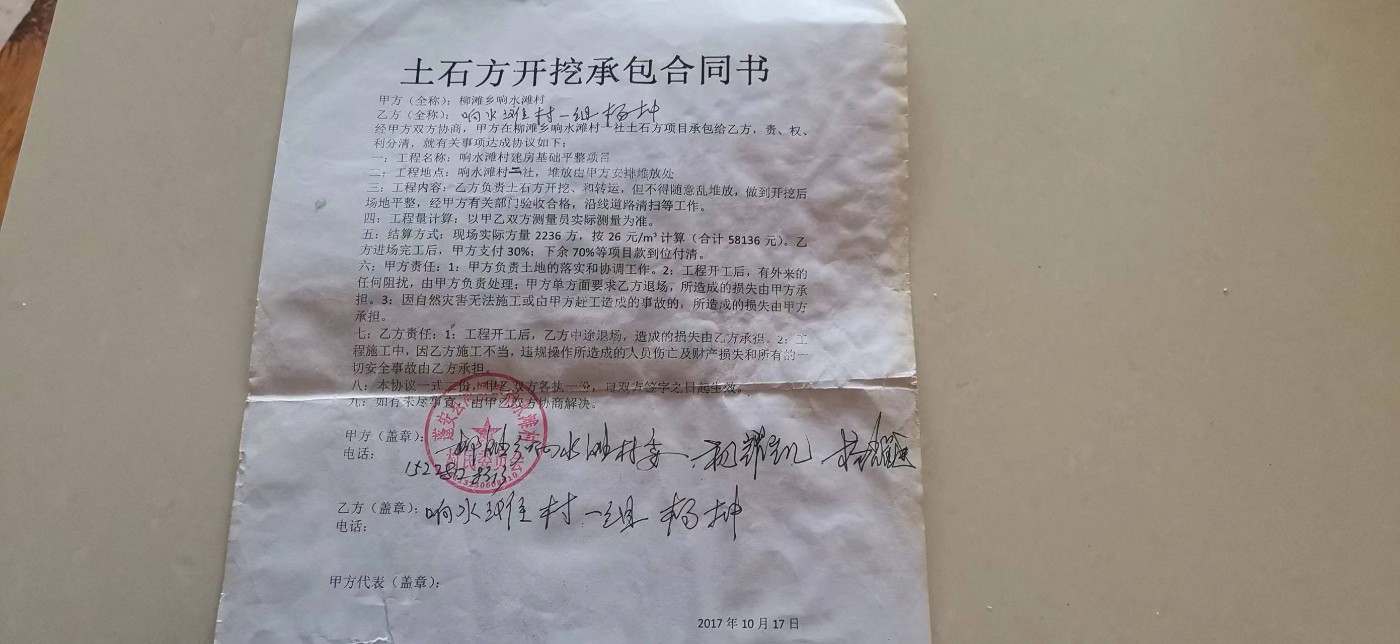 土石方开挖承包合同书
甲方（全称）：柳滩乡响水滩村
乙方（全称）：响水滩村一组杨坤
经甲方双方协商，甲方在柳滩乡响水滩村一社土石方项目承包给乙方，责、权、
利分清，就有关事项达成协议如下：
一：工程名称：响水滩村建房基础平整项目
二：工程地点：响水滩村二社，堆放由甲方安排堆放处
三：工程内容：乙方负责土石方开挖、和转运，但不得随意乱堆放，做到开挖后
场地平整，经甲方有关部门验收合格，沿线道路清扫等工作。
四：工程量计算：以甲乙双方测量员实际测量为准。
五：结算方式：现场实际方量 2236 方，按 26 元/m³计算（合计 58136 元）。乙
方进场完工后，甲方支付 30%；下余 70%等项目款到位付清。
六：甲方责任：1：甲方负责土地的落实和协调工作。2：工程开工后，有外来的
任何阻扰，由甲方负责处理；甲方单方面要求乙方退场，所造成的损失由甲方承
担。3：因自然灾害无法施工或由甲方赶工造成的事故的，所造成的损失由甲方
承担。
七：乙方责任：1：工程开工后，乙方中途退场，造成的损失由乙方承担。2：工
程施工中，因乙方施工不当，违规操作所造成的人员伤亡及财产损失和所有的一
切安全事故由乙方承担。
八：本协议一式二份，甲乙双方各执一份，自双方签字之日起生效。
九：如有未尽事宜，由甲乙双方协商解决。
甲方（盖章）：柳滩乡响水滩村委
电话：
村民委员会
乙方（盖章）：响水滩村一组 杨坤
电话：
甲方代表（盖章）：
2017 年 10 月 17 日